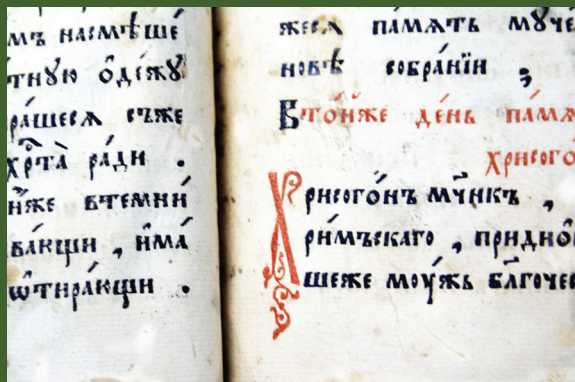 мъ насмѣше́
тнꙋ́ю ѻ҆де́жꙋ
ра́шесѧ съже
хрⷭ҇та̀ ра́ди .
ни́же втемни́
ва́ющи , и҆ма́
ѿтира́ющи .
жесѧ па́мѧть мꙋче
новѣ̀ собра́нїи ҙ
Вто́нже де́нь па́мѧ
хрисого
Хрисого́нъ мч҃нкъ ,
ри́мъскаго , придио́
шеже моу́жь бл҃гоче